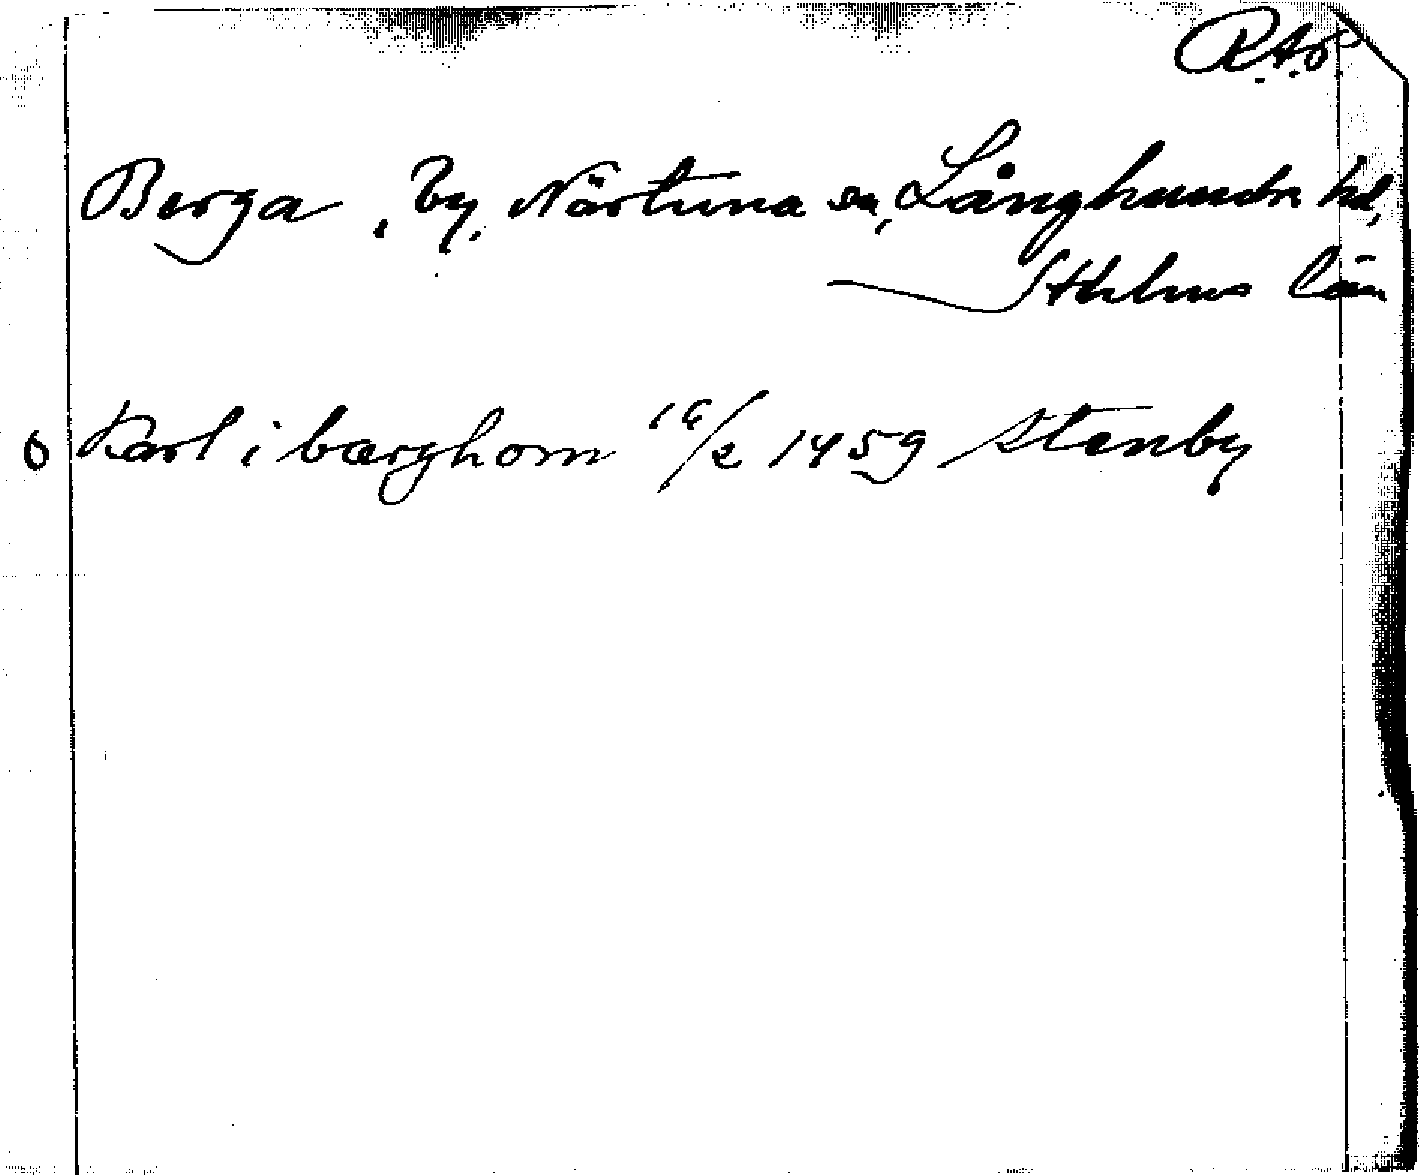 R.A.ö.
Berga, by, Närtuna sn, Långhundra hd,
Sthlms län
o Karl i bærghom 16/2 1459 Stenby